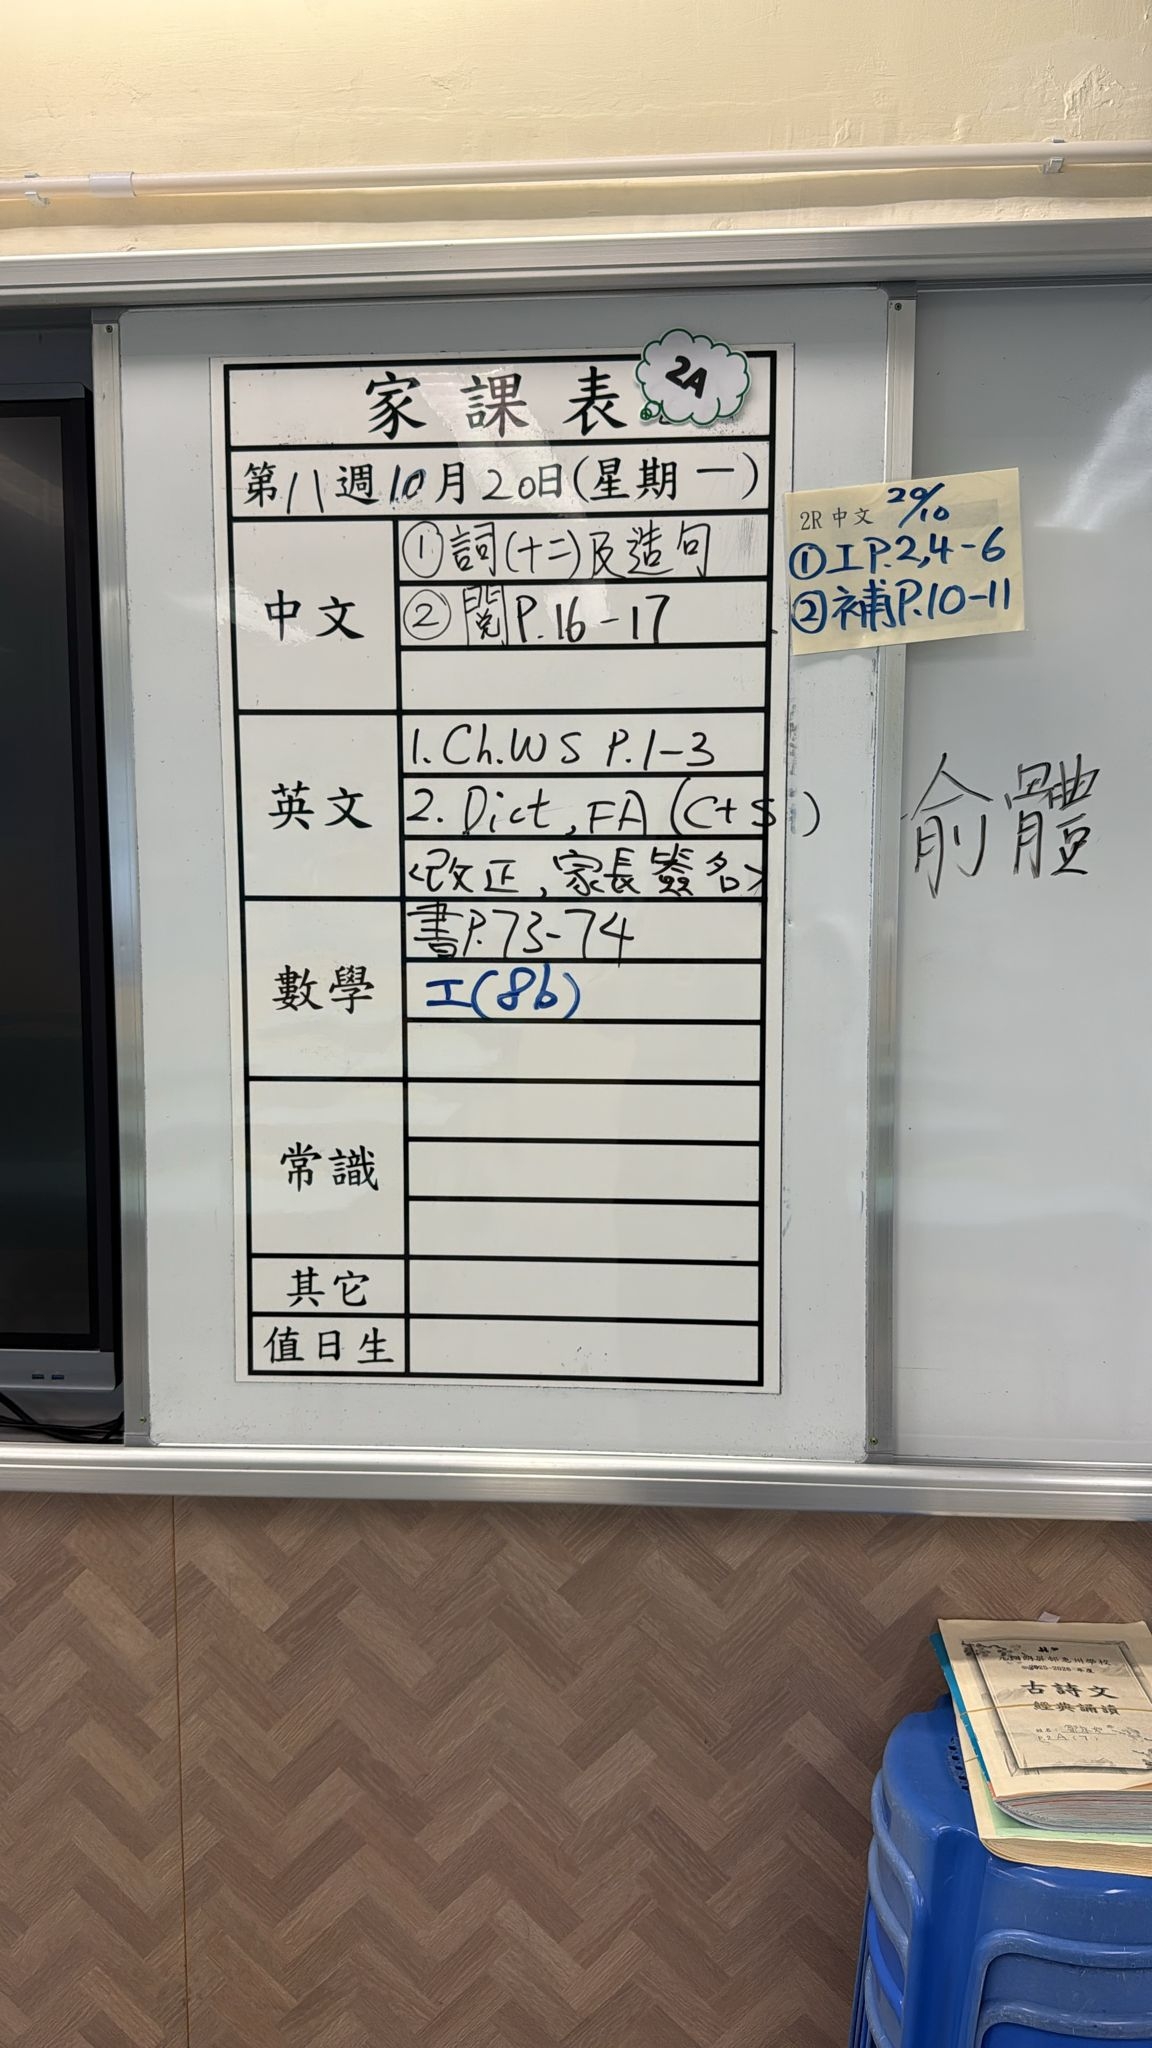 家課表
2A
第八週10月20日(星期一)
中文
①詞(十二)及造句
②閱P.16-17
英文
1.Ch.WS P.1-3
2.Dict,FA(C+S)
<改正,家長簽名>
數學
書P.73-74
工(8b)
常識
其它
值日生
2R中文 20/10
①工P.2,4-6
②補P.10-11
俞體
2025-2026年度
古詩文
經典誦讀
P.2A(7)